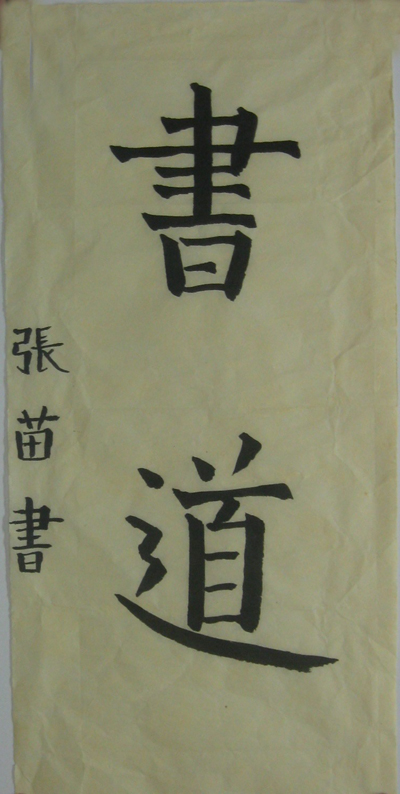 書道
張苗書